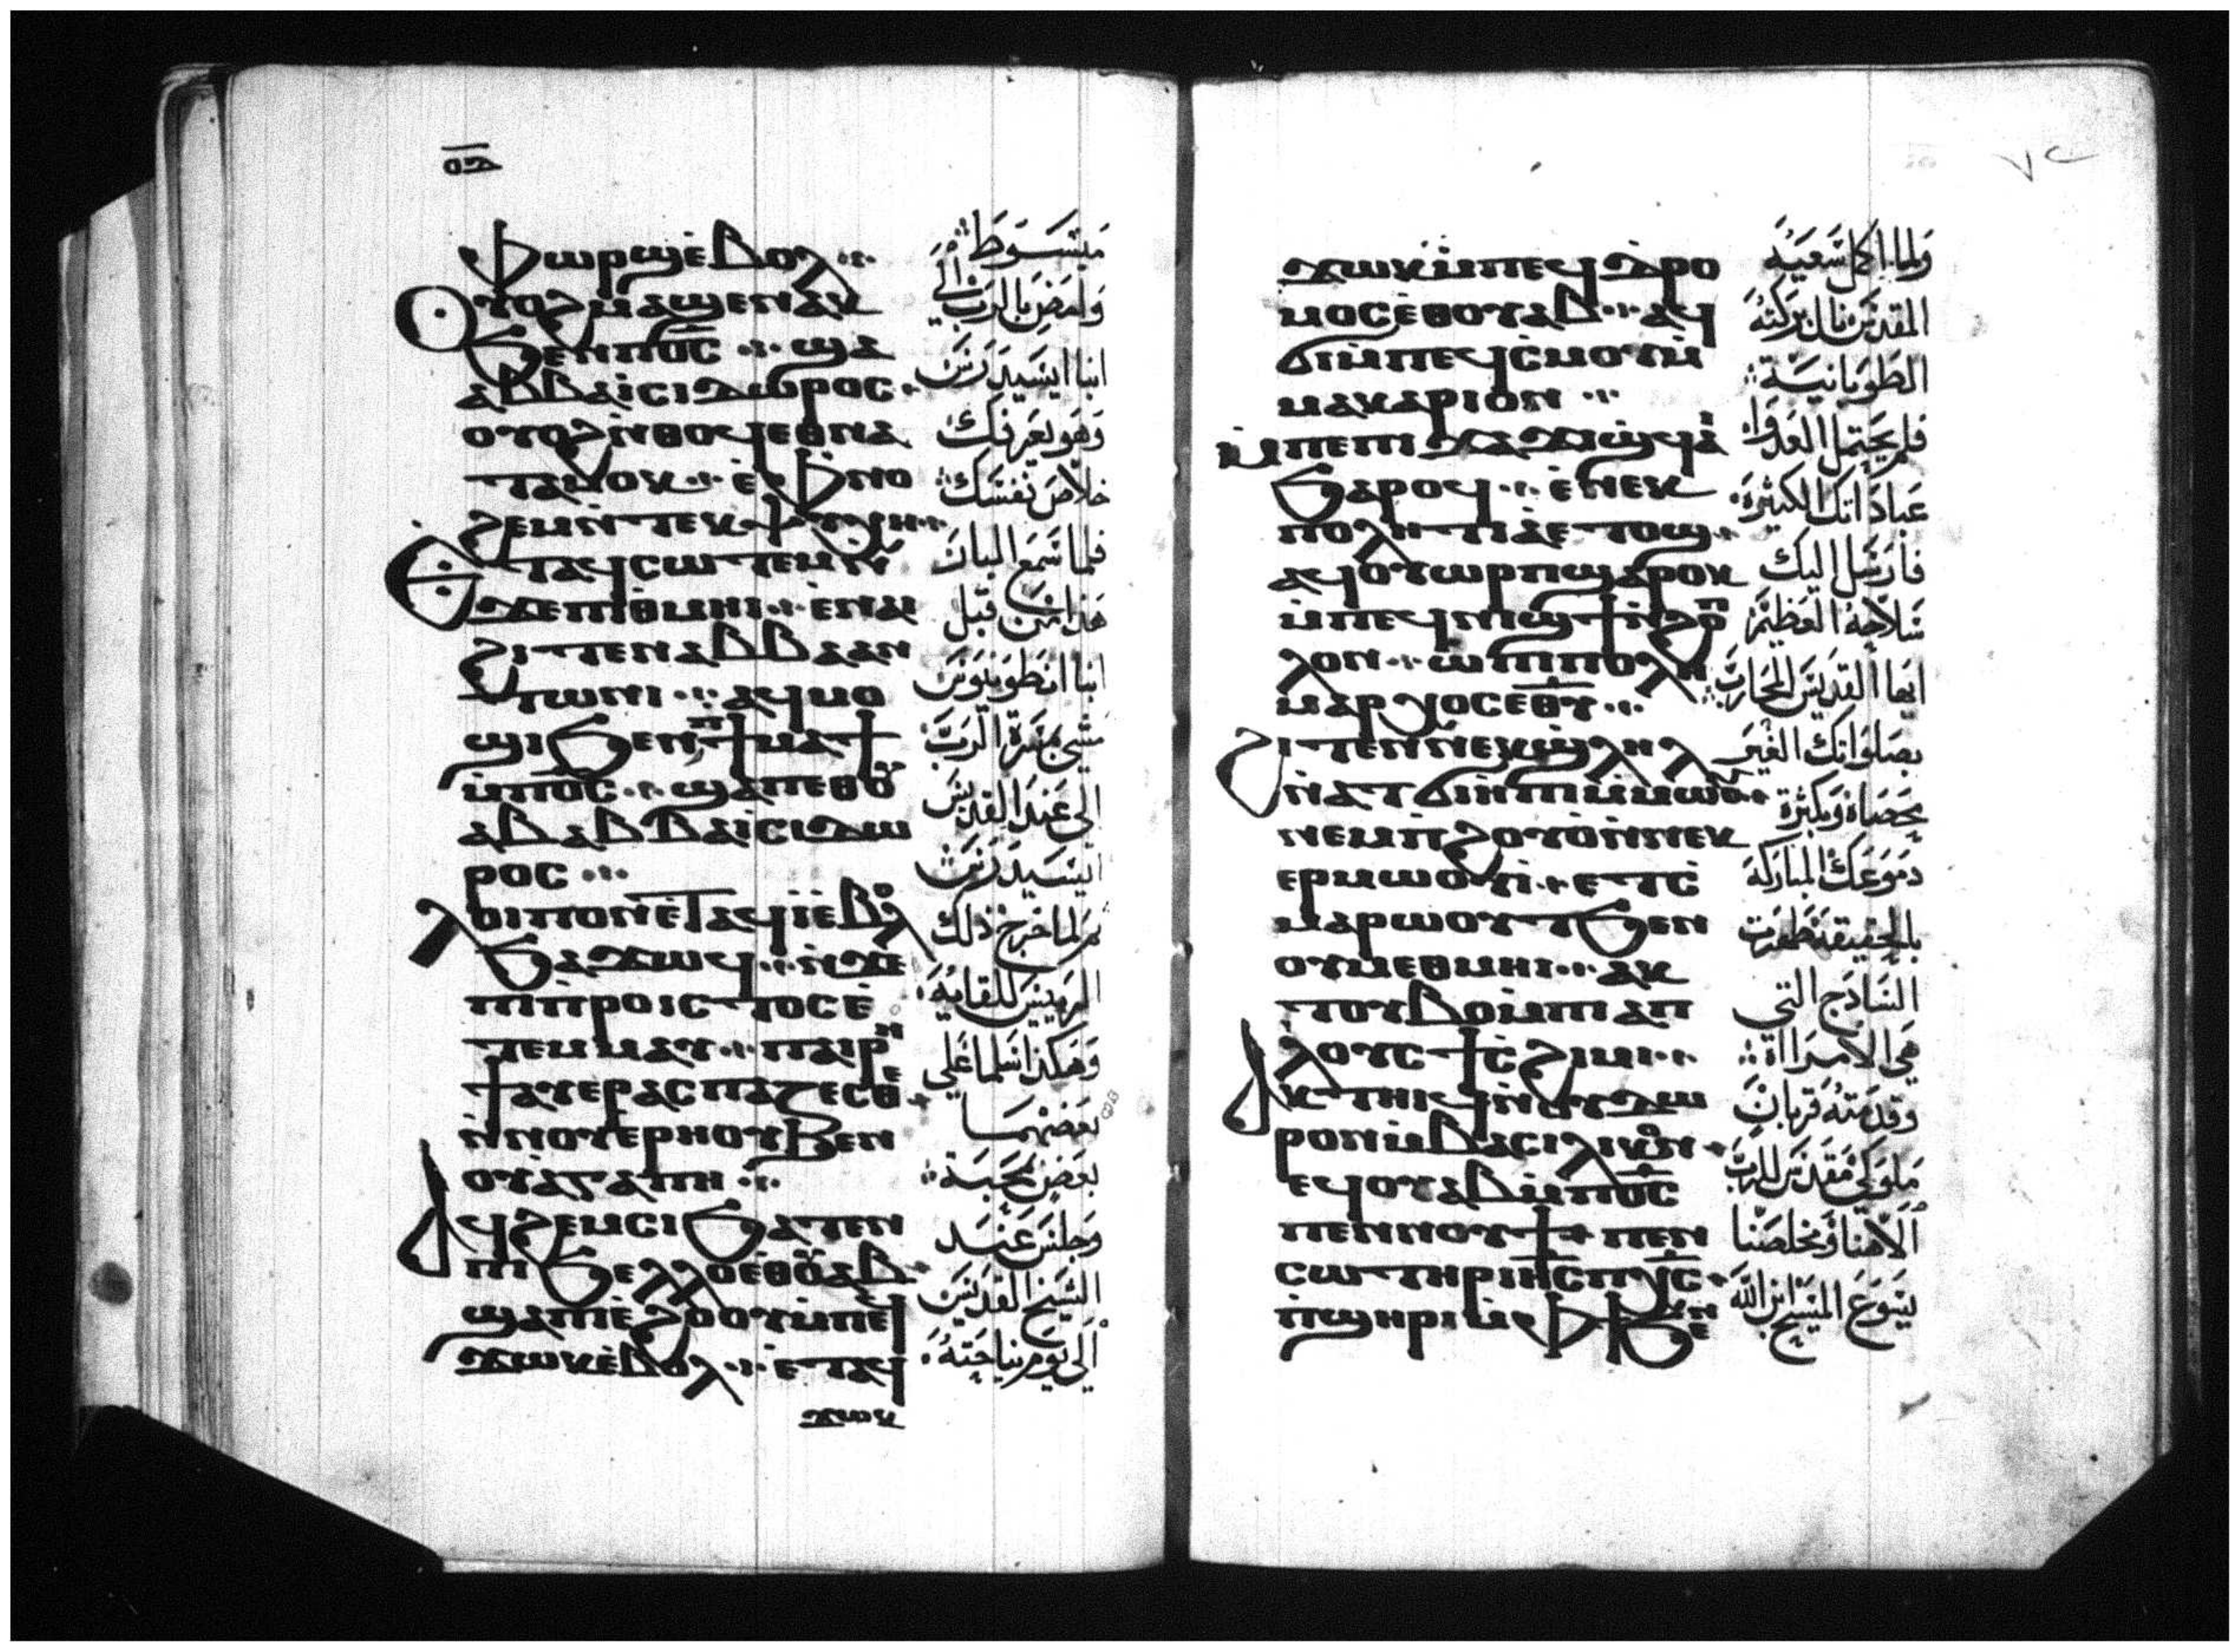 ⲟⲁ
ⲫⲱⲣϣⲉ̀ⲃⲟⲗ
ⲟⲩⲟϩⲙⲁϣⲉⲛⲁⲕ
ϧⲉⲛⲡⲟ̅ⲥ̅ ϣⲁ
ⲁⲃⲃⲁⲓ̀ⲥⲓⲇⲱⲣⲟⲥ
ⲟⲩⲟϩⲛ̀ⲑⲟϥⲉⲑⲛⲁ
ⲧⲁⲙⲟⲕ ⲉ̀ⲫⲛⲟ
ϩⲉⲙⲛ̀ⲧⲉⲕⲯⲩⲭⲏ
ⲉⲧⲁϥⲥⲱⲧⲉⲙⲛ̀
ϫⲉⲡⲓⲑⲙⲏⲓ ⲉ̀ⲛⲁⲓ
ϩⲓⲧⲉⲛⲁⲃⲃⲁⲁⲛ
ⲧⲱⲛⲓ ⲁϥⲙⲟ
ϣⲓϧⲉⲛⲡϯⲙⲁϯ
ⲙ̀ⲡⲟ̅ⲥ̅ ϣⲁⲡⲉⲑⲟⲩ
ⲁⲃⲁⲃⲃⲁⲓ̀ⲥⲓⲇⲱ
ⲣⲟⲥ
ⲗⲟⲓⲡⲟⲛⲉ̀ⲧⲁϥⲓ̀ⲉ̀ⲃⲟⲗ
ϧⲁϫⲱϥ ⲛ̀ϫⲉ
ⲡⲓⲡ̀ⲣⲟⲓⲥⲧⲟⲥⲉ̀
ⲧⲉⲙⲙⲁⲩ ⲡⲁⲓⲣⲏ
ϯⲁⲩⲉⲣⲁⲥⲡⲁⲍⲉⲥⲑⲉ
ⲛ̀ⲛⲟⲩⲉⲣⲏⲟⲩϧⲉⲛ
ⲟⲩⲁ̀ⲅⲁⲡⲏ
ⲁϥϩⲉⲙⲥⲓϧⲁⲧⲉⲛ
ⲡⲓϧⲉⲗⲗⲟⲉⲑⲟⲩⲁⲃ
ϣⲁⲡⲓⲉ̀ϩⲟⲟⲩⲙ̀ⲡⲉϥ
ϫⲱⲕⲉ̀ⲃⲟⲗ ⲉ̀ⲧⲁϥ
ϫⲱⲕ
مبسوط
وامض بالرب الي
انبا ايسيدرس
وهو يعرفك
خلاص نفسك
فلما سمع البار
هذا من قبل
انبا انطونيوس
مشي بمسرة الرب
الي عند القديس
ايسيدرس
ثم لما خرج ذلك
الرييس للقايه
وهكذا سلما علي
بعضهما
بعض بمحبة
وجلس عند
الشيخ القديس
الي يوم نياحته
ϫⲱⲕⲙ̀ⲡⲉϥⲇ̀ⲣⲟ
ⲙⲟⲥⲉ̀ⲑⲟⲩⲁⲃ ⲁϥ
ϭⲓⲙ̀ⲡⲉϥⲥ̀ⲙⲟⲩⲙ̀
ⲙⲁⲕⲁⲣⲓⲟⲛ
ⲙ̀ⲡⲉⲡⲓϫⲁϫⲓϣ̀ϥⲁⲓ
ϧⲁⲣⲟϥ ⲉ̀ⲛⲉⲕ
ⲡⲟⲗⲏⲧⲓⲁ̀ⲉⲧⲟϣ
ⲁϥⲟⲩⲱⲣⲡϣⲁⲣⲟⲕ
ⲙ̀ⲡⲉϥⲛⲓϣϯⲛ̀ϩⲟⲡ
ⲗⲟⲛ ⲱ̀ⲡⲓⲡⲟⲗⲏ
ⲙⲁⲣⲭⲟⲥⲉⲑⲩ̅
ϩⲓⲧⲉⲛⲛⲉⲕϣ̀ⲗⲏⲗ
ⲛ̀ⲁⲧϭⲓⲏ̀ⲡⲓⲙ̀ⲙⲱⲟⲩ
ⲛⲉⲙⲡ̀ϩⲟⲩⲟ̀ⲛ̀ⲛⲉⲕ
ⲉⲣⲙⲱⲟⲩⲓ̀ ⲉⲧⲥ̀
ⲙⲁⲣⲱⲟⲩⲧϧⲉⲛ
ⲟⲩⲙⲉⲑⲙⲏⲓ ⲁⲕ
ⲧⲟⲩⲃⲟⲙ̀ⲡⲓⲁⲡ
ⲗⲟⲩⲥϯⲥ̀ϩⲓⲙⲓ
ⲁⲕⲧⲏⲓϥⲛ̀ⲟⲩⲇⲱ
ⲣⲟⲛⲙ̀ⲃⲁⲥⲓⲗⲓⲕⲟⲛ
ⲉϥⲟⲩⲁⲃⲙ̀ⲡⲟ̅ⲥ̅
ⲡⲉⲛⲛⲟⲩϯ ⲡⲉⲛ
ⲥⲱⲧⲏⲣⲓⲏ̅ⲥ̅ⲡⲭ̅ⲥ̅
ⲡ̀ϣⲏⲣⲓⲙ̀ⲫϯϧⲉⲛ
ولما اكمل سعيه
المقدس نال بركته
الطوبانية
فلم يحتمل العدو
عباداتك الكثيرة
فارسل اليك
سلاحه العظيم
ايها القديس المحارب
بصلواتك الغير
محصاة وبكثرة
دموعك المباركة
بالحقيقة طهرت
الساذج التي
هي الامراة
وقدمته قربان
ملوكي مقدس للرب
الاهنا ومخلصنا
يسوع المسيح ابن الله